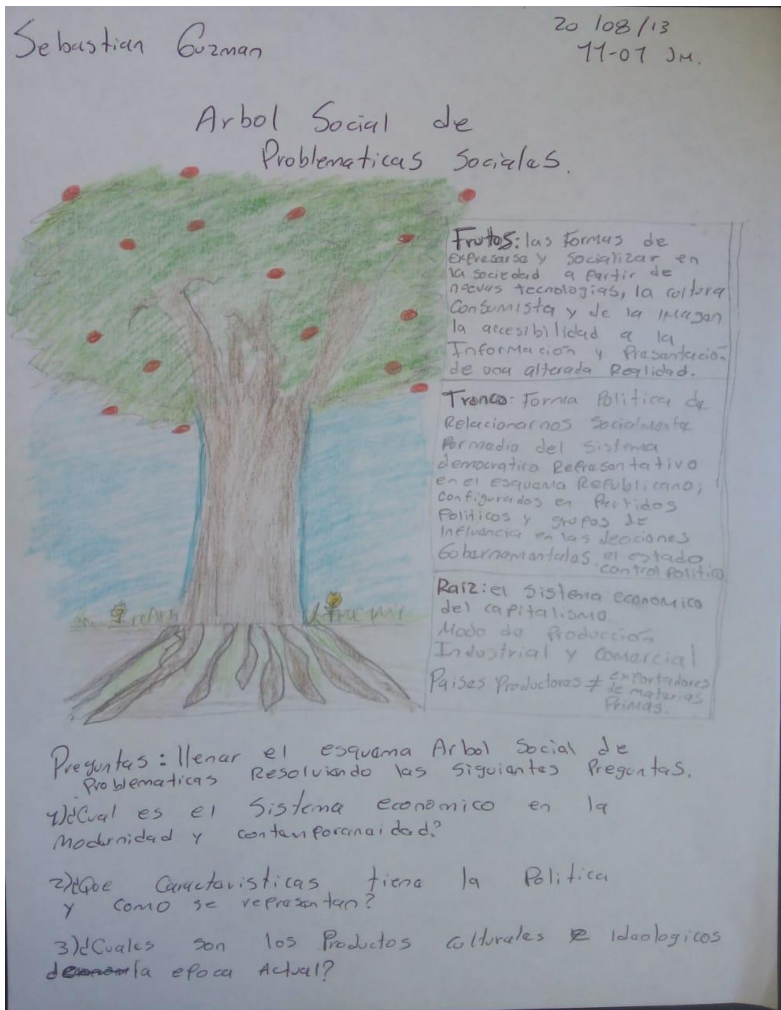 Sebastian Guzman
20/08/13
11-01 JM.
Arbol Social de
Problematicas Sociales.
Frutos: las Formas de
expresarse y Socializar en
la sociedad a partir de
nuevas tecnologias, la cultura
Consumista y de la imagen
la accesibilidad a la
Información y Presentación
de una alterada Realidad.
Tronco: Forma Politica de
Relacionarnos Socialmente
Por medio del Sistema
democratico Representativo
en el esquema Republicano;
configurados en Partidos
Politicos y grupos de
Influencia en las deciciones
Gobernamentales. el estado
control politico
Raiz: el Sistema economico
del capitalismo
Modo de Producción
Industrial y Comercial
Paises Productores ≠ exportadores
de materias
Primas.
Preguntas: llenar el esquema Arbol Social de
Problematicas Resolviendo las Siguientes Preguntas.
1)¿Cual es el Sistema economico en la
Modernidad y contemporanaidad?
2)¿Que Caracteristicas tiene la Politica
y como se representan?
3)¿Cuales son los Productos culturales e Ideologicos
de la epoca Actual?